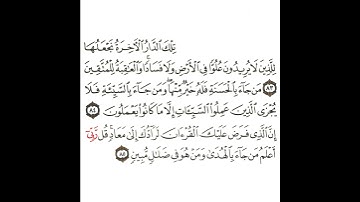 تِلْكَ ٱلدَّارُ ٱلْأَخِرَةُ نَجْعَلُهَا
لِلَّذِينَ لَا يُرِيدُونَ عُلُوًّا فِي ٱلْأَرْضِ وَلَا فَسَادًا وَٱلْعَٰقِبَةُ لِلْمُتَّقِينَ
٨٣ مَن جَآءَ بِٱلْحَسَنَةِ فَلَهُۥ خَيْرٌ مِّنْهَا وَمَن جَآءَ بِٱلسَّيِّئَةِ فَلَا
يُجْزَى ٱلَّذِينَ عَمِلُوا۟ ٱلسَّيِّـَٔاتِ إِلَّا مَا كَانُوا۟ يَعْمَلُونَ ٨٤
إِنَّ ٱلَّذِى فَرَضَ عَلَيْكَ ٱلْقُرْءَانَ لَرَآدُّكَ إِلَىٰ مَعَادٍ قُل رَّبِّىٓ
أَعْلَمُ مَن جَآءَ بِٱلْهُدَىٰ وَمَنْ هُوَ فِى ضَلَٰلٍ مُّبِينٍ ٨٥